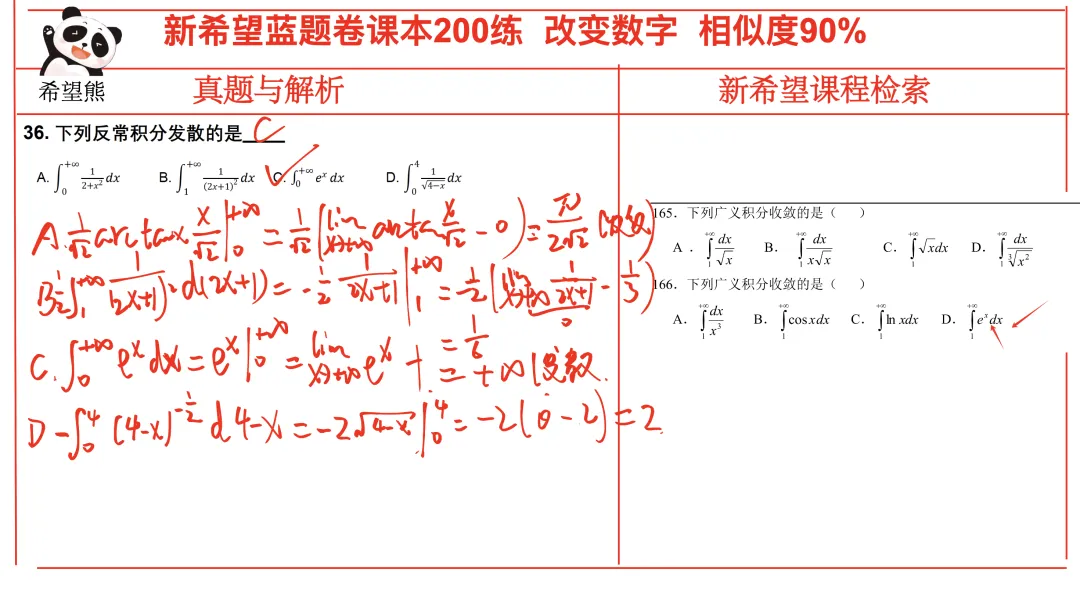 新希望蓝题卷课本200练 改变数字 相似度90%
希望熊
真题与解析
新希望课程检索
36. 下列反常积分发散的是 C
A. ∫₀^{+∞} 1/(2+x²) dx B. ∫₁^{+∞} 1/(2x+1)² dx C. ∫₀^{+∞} eˣ dx D. ∫₀⁴ 1/√(4−x) dx
A. 1/√2 arctan x/√2 |₀^{+∞} = 1/√2 (lim x→+∞ arctan x/√2 − 0) = π/(2√2) (收敛)
B. 1/2 ∫₁^{+∞} 1/(2x+1)² d(2x+1) = −1/2 1/(2x+1) |₁^{+∞} = −1/2 (lim x→+∞ 1/(2x+1) − 1/3)
0
= 1/6
C. ∫₀^{+∞} eˣ dx = eˣ |₀^{+∞} = lim x→+∞ eˣ
= +∞ 发散.
D −∫₀⁴ (4−x)^{−1/2} d 4−x = −2√(4−x) |₀⁴ = −2(0−2) = 2.
165．下列广义积分收敛的是（ ）
A． ∫₁^{+∞} dx/√x B． ∫₁^{+∞} dx/(x√x) C． ∫₁^{+∞} √x dx D． ∫₁^{+∞} dx/∛(x²)
166．下列广义积分收敛的是（ ）
A． ∫₁^{+∞} dx/x³ B． ∫₁^{+∞} cos xdx C． ∫₁^{+∞} ln xdx D． ∫₁^{+∞} eˣdx